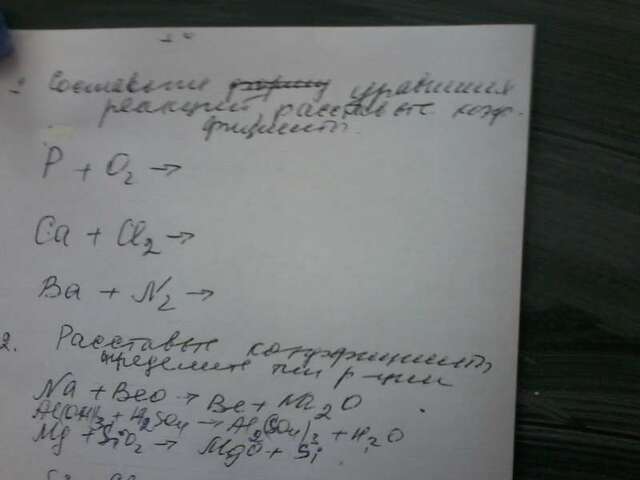 Составьте уравнения
реакций расставьте коэф-
фициенты.
P + O₂ →
Ca + Cl₂ →
Ba + N₂ →
2. Расставьте коэффициенты
определите тип р-ции
Na + BeO → Be + Na₂O
Al(OH)₃ + H₂SO₄ → Al₂(SO₄)₃ + H₂O
Mg + SiO₂ → MgO + Si